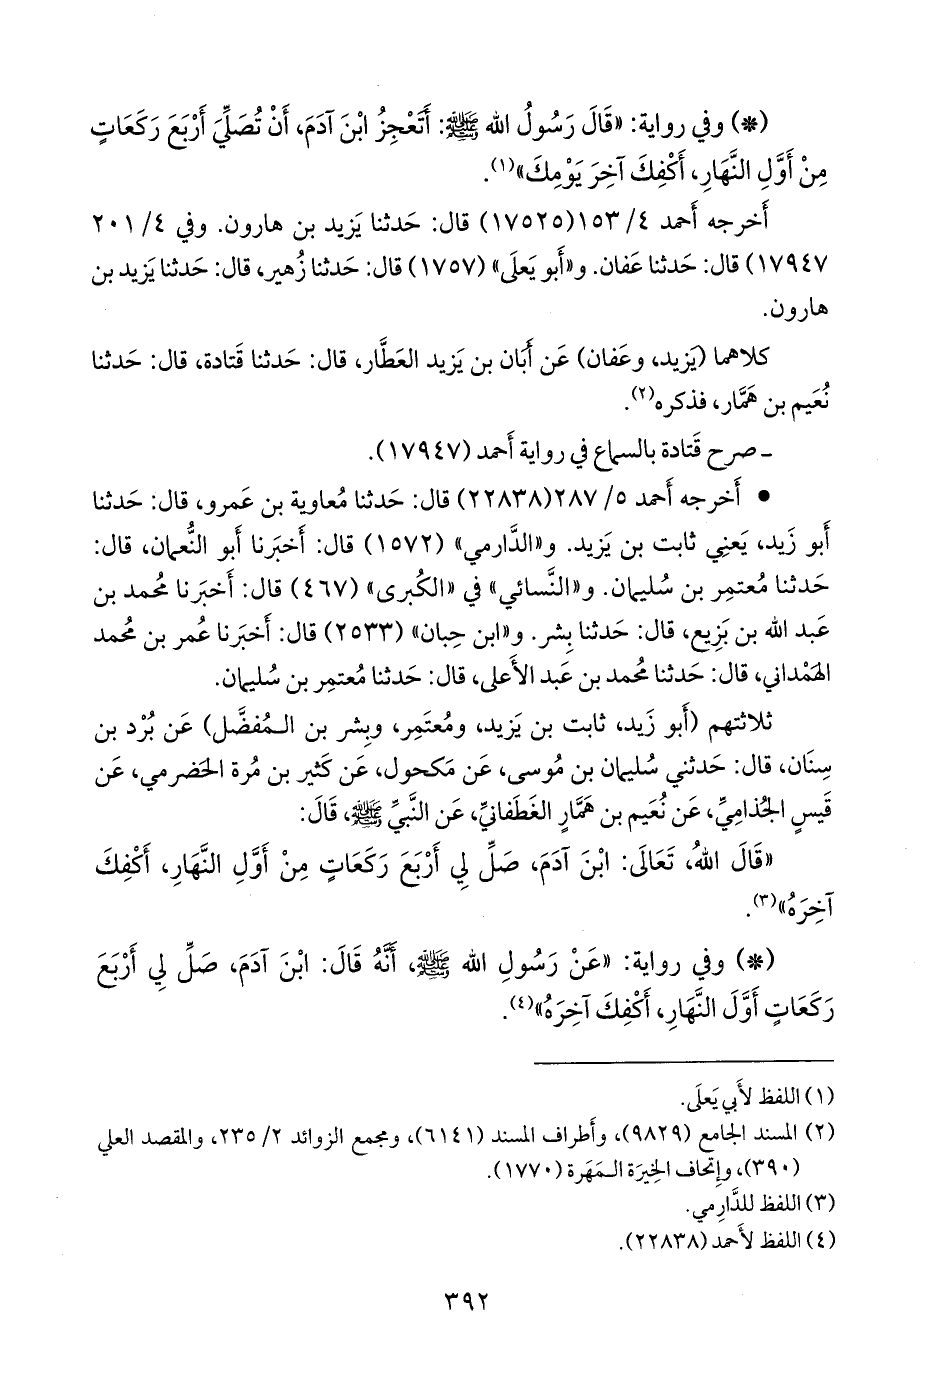 (*) وفي رواية: «قَالَ رَسُولُ الله ﷺ: أَتَعْجِزُ ابْنَ آدَمَ، أَنْ تُصَلِّيَ أَرْبَعَ رَكَعَاتٍ
مِنْ أَوَّلِ النَّهَارِ، أَكْفِكَ آخِرَ يَوْمِكَ»(١).
أَخرجه أَحمد ٤/ ١٥٣(١٧٥٢٥) قال: حَدثنا يَزيد بن هارون. وفي ٤/ ٢٠١
١٧٩٤٧) قال: حَدثنا عَفان. و«أَبو يَعلَى» (١٧٥٧) قال: حَدثنا زُهير، قال: حَدثنا يَزيد بن
هارون.
كلاهما (يَزيد، وعَفان) عَن أَبَان بن يَزيد العَطَّار، قال: حَدثنا قَتادة، قال: حَدثنا
نُعَيم بن هَمَّار، فذكره(٢).
ـ صرح قَتادة بالسماع في رواية أَحمد (١٧٩٤٧).
• أَخرجه أَحمد ٥/ ٢٨٧(٢٢٨٣٨) قال: حَدثنا مُعاوية بن عَمرو، قال: حَدثنا
أَبو زَيد، يَعنِي ثابت بن يَزيد. و«الدَّارمي» (١٥٧٢) قال: أَخبَرنا أَبو النُّعمان، قال:
حَدثنا مُعتمِر بن سُليمان. و«النَّسائي» في «الكُبرى» (٤٦٧) قال: أَخبَرنا مُحمد بن
عَبد الله بن بَزيع، قال: حَدثنا بِشر. و«ابن حِبان» (٢٥٣٣) قال: أَخبَرنا عُمر بن مُحمد
الهَمْداني، قال: حَدثنا مُحمد بن عَبد الأَعلى، قال: حَدثنا مُعتمِر بن سُليمان.
ثلاثتهم (أَبو زَيد، ثابت بن يَزيد، ومُعتَمِر، وبِشر بن الـمُفضَّل) عَن بُرْد بن
سِنَان، قال: حَدثني سُليمان بن مُوسى، عَن مَكحول، عَن كَثير بن مُرة الحَضرمي، عَن
قَيسٍ الجُذامِيِّ، عَن نُعَيم بن هَمَّارٍ الغَطَفانيِّ، عَن النَّبيِّ ﷺ، قَالَ:
«قَالَ اللهُ، تَعَالَى: ابْنَ آدَمَ، صَلِّ لِي أَرْبَعَ رَكَعَاتٍ مِنْ أَوَّلِ النَّهَارِ، أَكْفِكَ
آخِرَهُ»(٣).
(*) وفي رواية: «عَنْ رَسُولِ الله ﷺ، أَنَّهُ قَالَ: ابْنَ آدَمَ، صَلِّ لِي أَرْبَعَ
رَكَعَاتٍ أَوَّلَ النَّهَارِ، أَكْفِكَ آخِرَهُ»(٤).
(١) اللفظ لأَبي يَعلَى.
(٢) المسند الجامع (٩٨٢٩)، وأَطراف المسند (٦١٤١)، ومجمع الزوائد ٢/ ٢٣٥، والمقصد العلي
(٣٩٠)، وإِتحاف الخِيرَة الـمَهَرة (١٧٧٠).
(٣) اللفظ للدَّارِمي.
(٤) اللفظ لأَحمد (٢٢٨٣٨).
٣٩٢